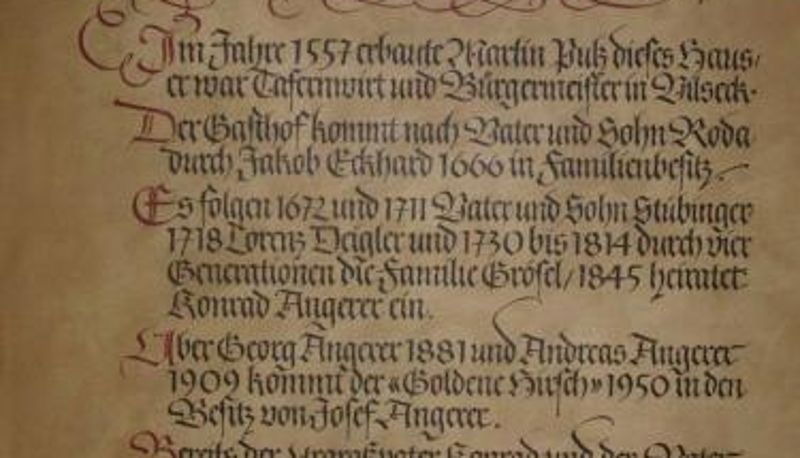 Im Jahre 1557 erbaute Martin Putz dieses Haus,
er war Tafernwirt und Bürgermeister in Vilseck.
Der Gasthof kommt nach Vater und Sohn Roda
durch Jakob Eckhard 1666 in Familienbesitz.
Es folgen 1672 und 1711 Vater und Sohn Stubinger
1718 Lorenz Deigler und 1730 bis 1814 durch vier
Generationen die Familie Grösel, 1845 heiratet
Konrad Angerer ein.
Über Georg Angerer 1881 und Andreas Angerer
1909 kommt der «Goldene Hirsch» 1950 in den
Besitz von Josef Angerer.
Bereits der Konrad und der